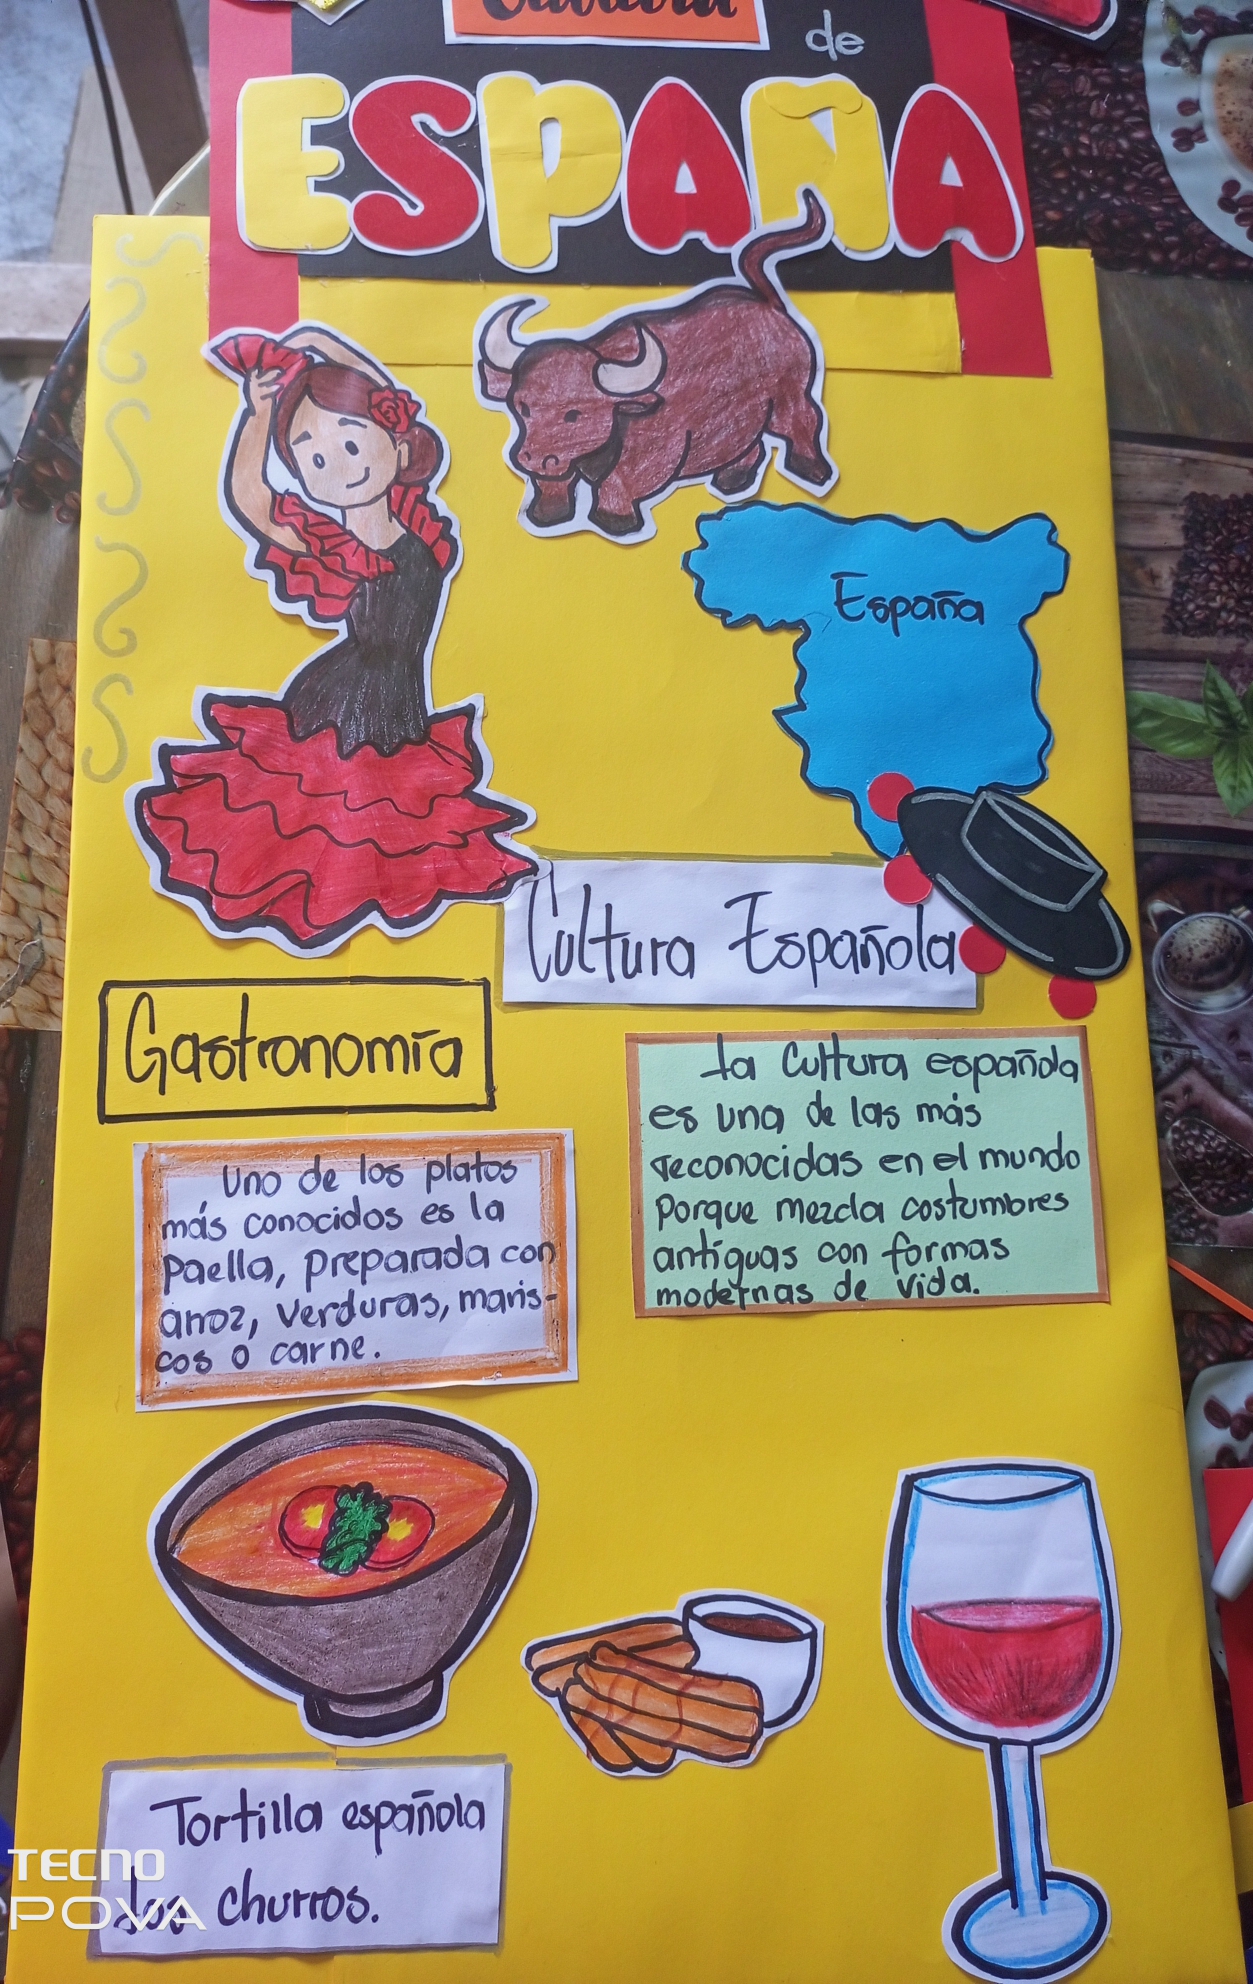 Cultura
de
ESPAÑA
España
Cultura Española
Gastronomía
La Cultura española
es una de las más
reconocidas en el mundo
Porque mezcla costumbres
antiguas con formas
modernas de vida.
Uno de los platos
más conocidos es la
Paella, preparada con
arroz, verduras, maris-
cos o carne.
Tortilla española
los churros.
TECNO
POVA